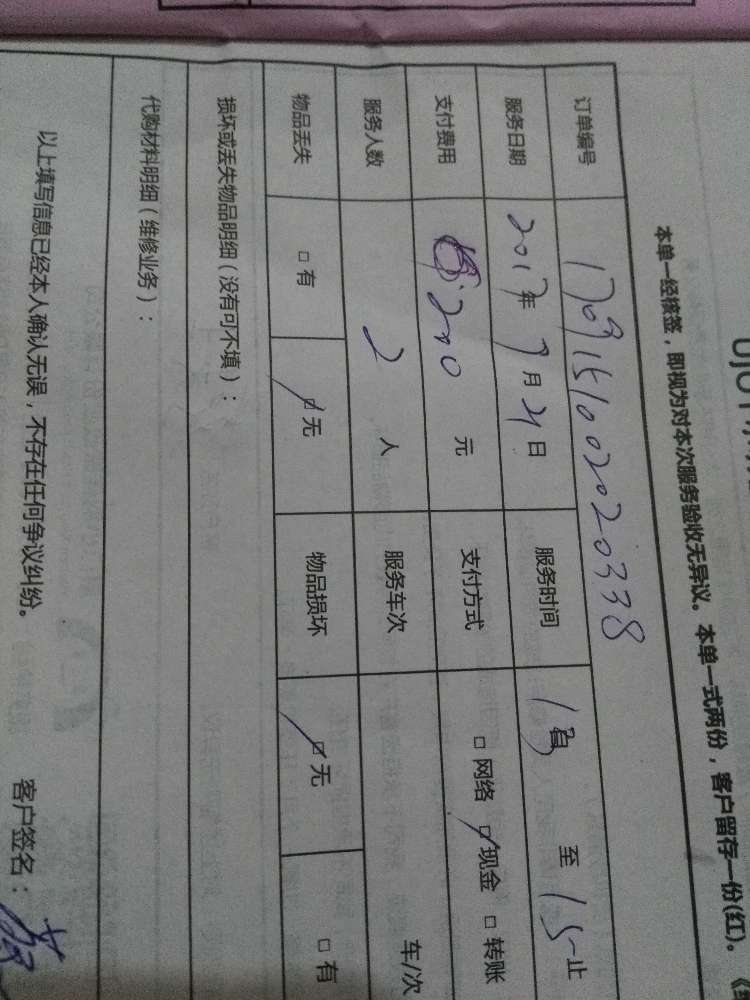 本单一经核签，即视为对本次服务验收无异议。本单一式两份，客户留存一份(红)。
订单编号 1709151002020338
服务日期 2017年 9月21日 服务时间 13自 至 15止
支付费用 210 元 支付方式 □ 网络 □ 现金 □ 转账
服务人数 2 人 服务车次 车/次
物品丢失 □ 有 □ 无 物品损坏 □ 无 □ 有
损坏或丢失物品明细（没有可不填）：
代购材料明细（维修业务）：
以上填写信息已经本人确认无误，不存在任何争议纠纷。 客户签名：